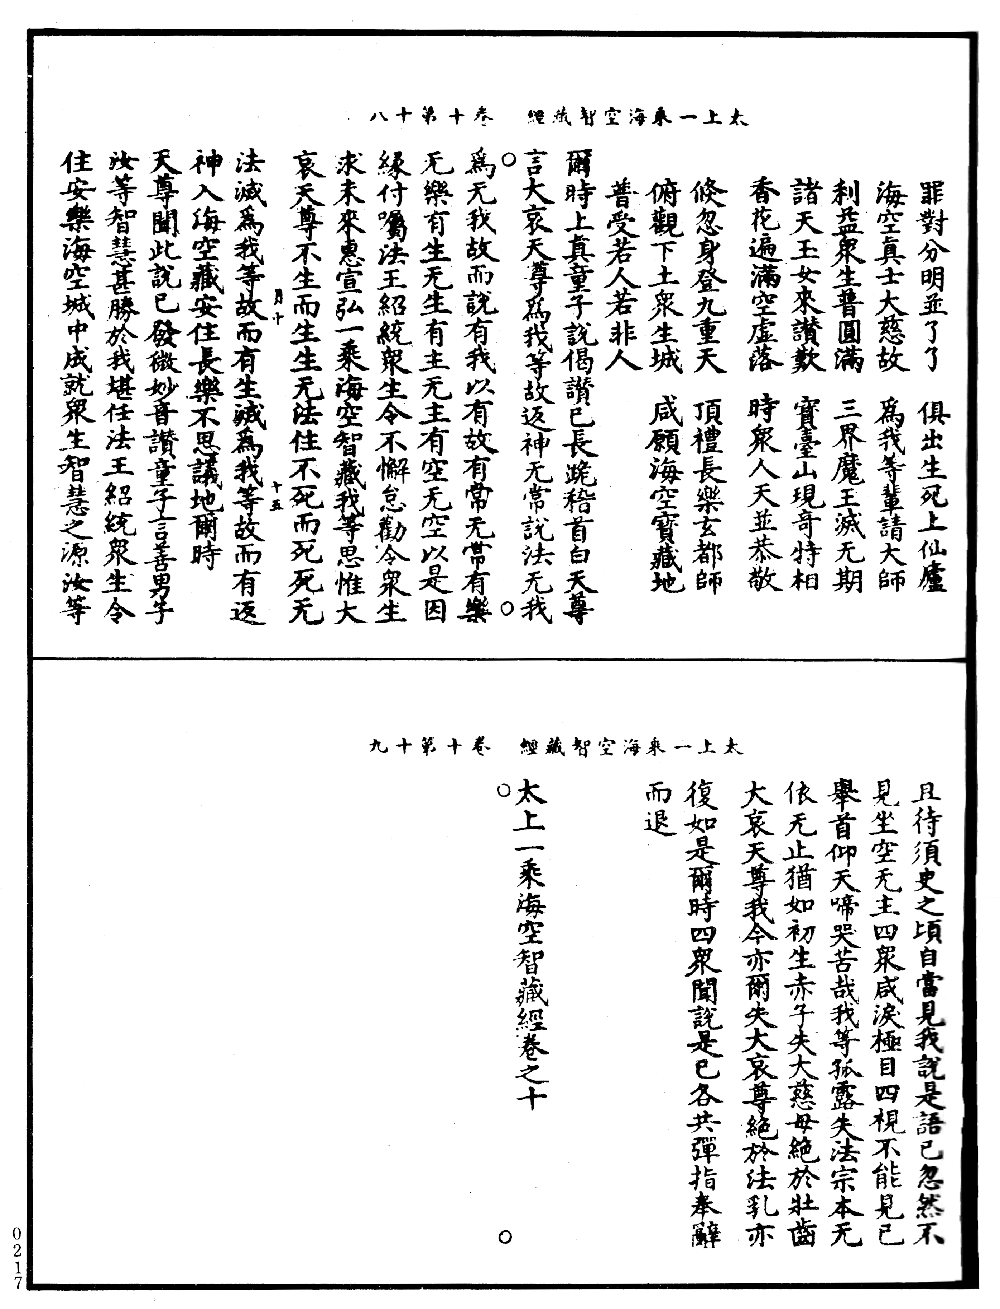 太上一乘海空智藏經　卷十第十八
罪對分明並了了　俱出生死上仙廬
海空真士大慈故　為我等輩請大師
利益衆生普圓滿　三界魔王滅无期
諸天玉女來讃歎　寶臺山現奇特相
香花遍滿空虛落　時衆人天並恭敬
倏忽身登九重天　頂禮長樂玄都師
俯觀下土衆生城　咸願海空寶藏地
普受若人若非人
爾時上真童子說偈讃已長跪稽首白天尊
言大哀天尊為我等故返神无常說法无我
為无我故而說有我以有故有常无常有樂
无樂有生无生有主无主有空无空以是因
緣付囑法王紹統衆生令不懈怠勸令衆生
求未來惠宣弘一乘海空智藏我等思惟大
哀天尊不生而生生无法住不死而死死无
月十　十五
法滅為我等故而有生滅為我等故而有返
神入海空藏安住長樂不思議地爾時
天尊聞此說已發微妙音讃童子言善男子
汝等智慧甚勝於我堪任法王紹統衆生令
住安樂海空城中成就衆生智慧之源汝等
太上一乘海空智藏經　卷十第十九
且待須臾之頃自當見我說是語已忽然不
見坐空无主四衆咸淚極目四視不能見已
舉首仰天啼哭苦哉我等孤露失法宗本无
依无止猶如初生赤子失大慈母絶於壯齒
大哀天尊我今亦爾失大哀尊絶於法乳亦
復如是爾時四衆聞說是已各共彈指奉辭
而退
太上一乘海空智藏經卷之十
0217